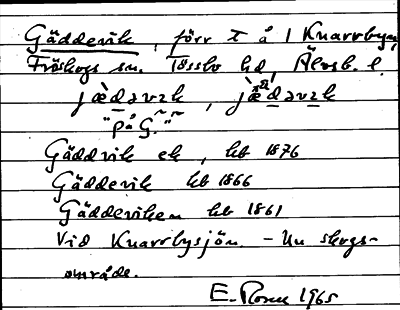 Gäddevik, förr t å 1 Knarrbyn,
Fröskogs sn. Tössbo hd, Älvsb. l.
jæ̀dəvɪk, jæ̀dəvɪk
"på G~"
Gäddvik ek, kb 1876
Gäddevik kb 1866
Gäddeviken kb 1861
Vid Knarrbysjön. - Nu skogs-
område.
E. Rosell 1965